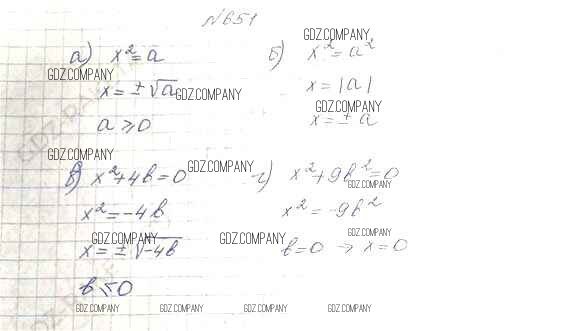 №651
а) x² = a
x = ±√a
a ≥ 0
б) x² = a²
x = |a|
x = ± a
в) x² + 4b = 0
x² = -4b
x = ±√-4b
b ≤ 0
г) x² + 9b² = 0
x² = -9b²
b = 0 → x = 0
GDZ.COMPANY
GDZ.COMPANY
GDZ.COMPANY
GDZ.COMPANY
GDZ.COMPANY
GDZ.COMPANY
GDZ.COMPANY
GDZ.COMPANY
GDZ.COMPANY
GDZ.COMPANY
GDZ.COMPANY
GDZ.COMPANY
GDZ.COMPANY
GDZ.COMPANY